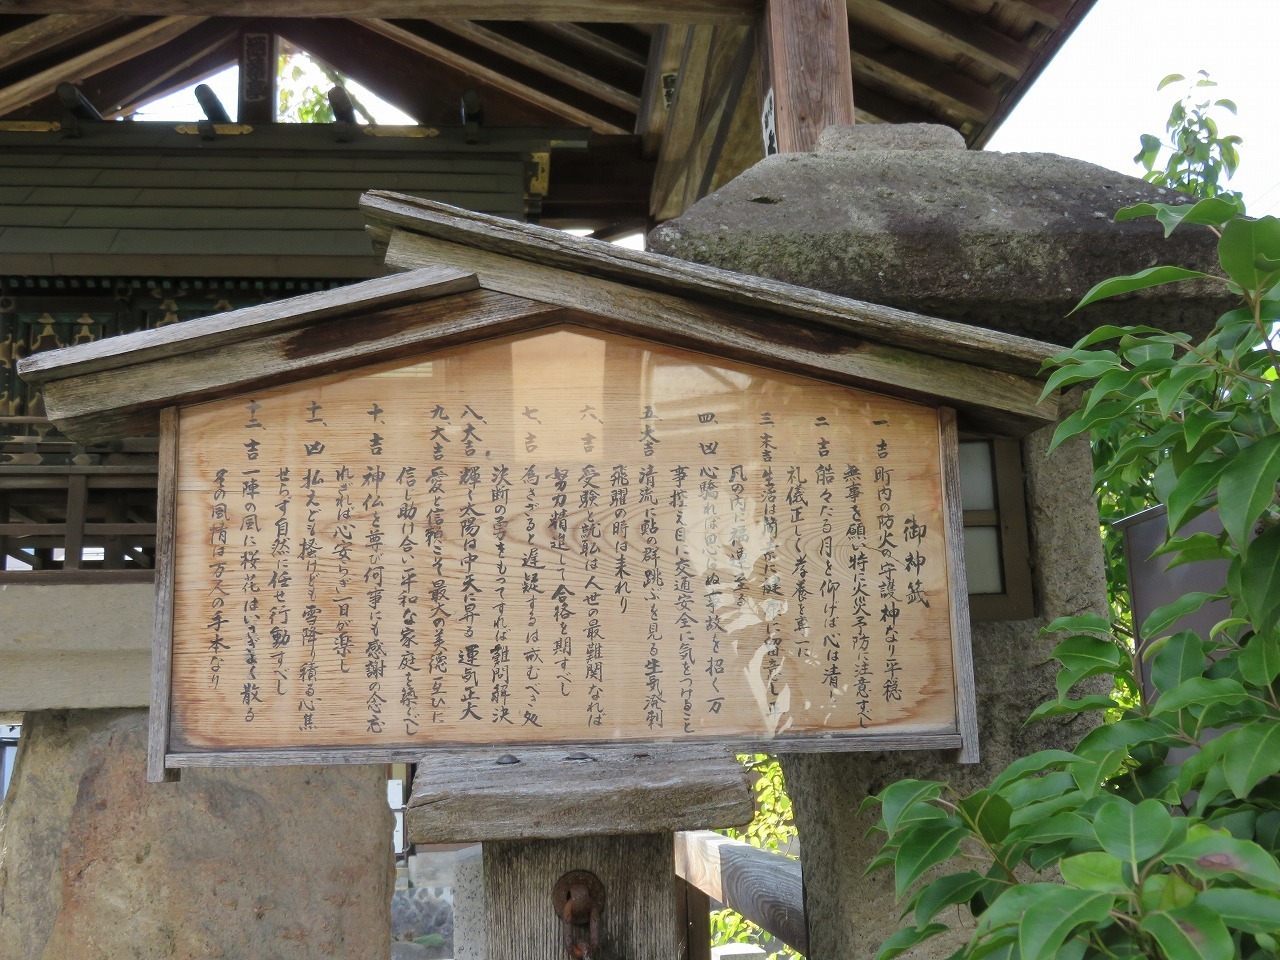 御神籤
一 吉 町内の防火の守護神なり平穏
無事を願い特に火災予防に注意すべし
二 吉 皓々たる月を仰げば心は清し
礼儀正しく孝養を専一に
三 末吉 生活は簡素に健康に留意し
凡の内に福
四、凶 心驕れば思いはぬ事故を招く万
事控え目に交通安全に気をつけること
五 大吉 清流に鮎の群跳ぶを見る生気溌剌
飛躍の時は来れり
六、吉 受験と就職は人世の最難関なれば
努力精進して合格を期すべし
七、吉 為さざると遅疑するは戒むべき処
決断の勇をもってすれば難問解決
八、大吉 輝く太陽は中天に昇る 運気正大
九 大吉 愛と信頼こそ最大の美徳互ひに
信じ助け合い平和な家庭を築くべし
十、吉 神仏を尊び何事にも感謝の念忘
れざれば心安らぎ一日が楽し
十一、凶 払えども掻けども雪降り積る心焦
せらず自然に任せ行動すべし
十二 吉 一陣の風に桜花はいさぎよく散る
その風情は万人の手本なり